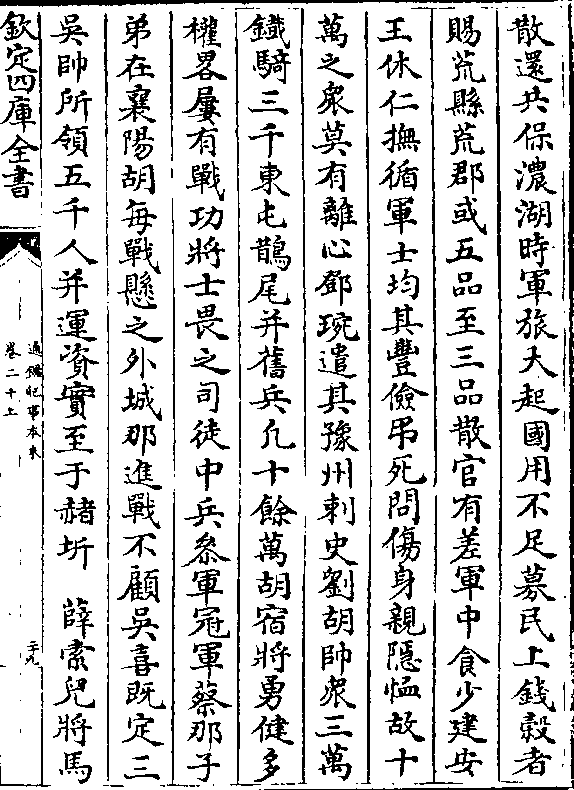 散還共保濃湖時軍旅大起國用不足募民上錢榖者
賜荒縣荒郡或五品至三品散官有差軍中食少建安
王休仁撫循軍士均其豐儉弔死問傷身親隱恤故十
萬之衆莫有離心鄧琬遣其豫州刺史劉胡帥衆三萬
鐵騎三千東屯鵲尾并舊兵凡十餘萬胡宿將勇健多
權畧屢有戰功將士畏之司徒中兵叅軍冠軍蔡那子
弟在襄陽胡每戰懸之外城那進戰不顧吳喜既定三
吳帥所領五千人并運資實至于赭圻　薛索兒將馬
欽定四庫全書
通鑑紀事本末
卷二十上